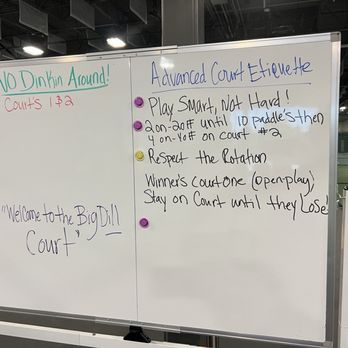 No Dinkin Around!
Courts 1 & 2
"Welcome to the Big Dill
Court"
Advanced Court Etiquette
Play Smart, Not Hard!
2 on - 2 off until 10 paddle's then
4 on - 4 off on court #2
Respect the Rotation
Winner's court one (open-play)
Stay on Court until they Lose!